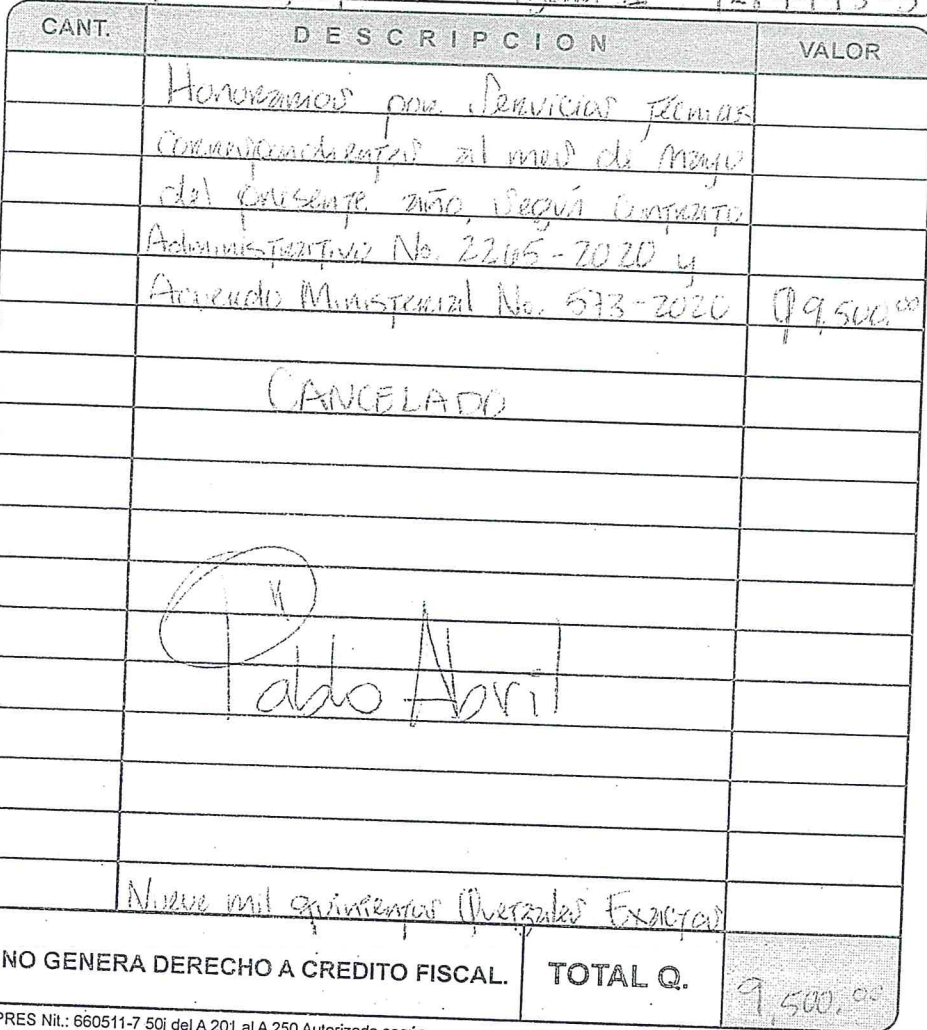 CANT. DESCRIPCION VALOR
Honorarios por Servicios Técnicos
correspondientes al mes de mayo
del presente año, Según Contrato
Administrativo No. 2265-2020 y
Acuerdo Ministerial No. 573-2020 Q9,500.00
CANCELADO
Pablo Abril
Nueve mil quinientos Quetzales Exactos
NO GENERA DERECHO A CREDITO FISCAL. TOTAL Q. 9,500.00
PRES Nit.: 660511-7 50j del A 201 al A 250 Autorizado según